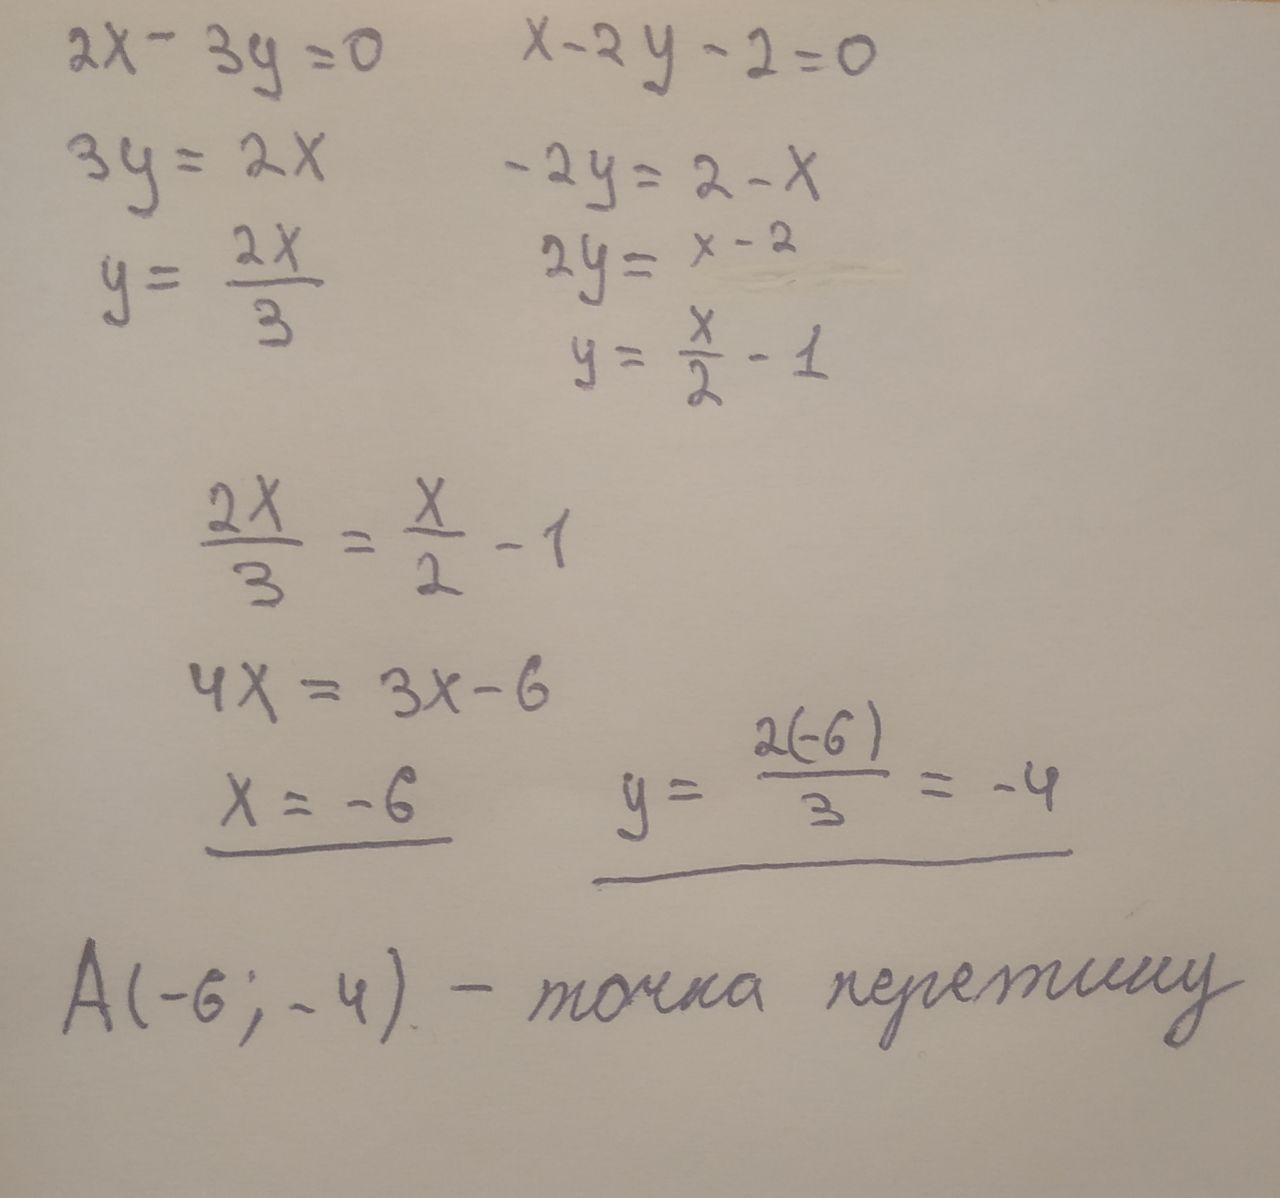 2x - 3y = 0 x - 2y - 2 = 0
3y = 2x -2y = 2 - x
y = 2x/3 2y = x - 2
y = x/2 - 1
2x/3 = x/2 - 1
4x = 3x - 6
x = -6 y = 2(-6)/3 = -4
A(-6; -4). - точка перетину